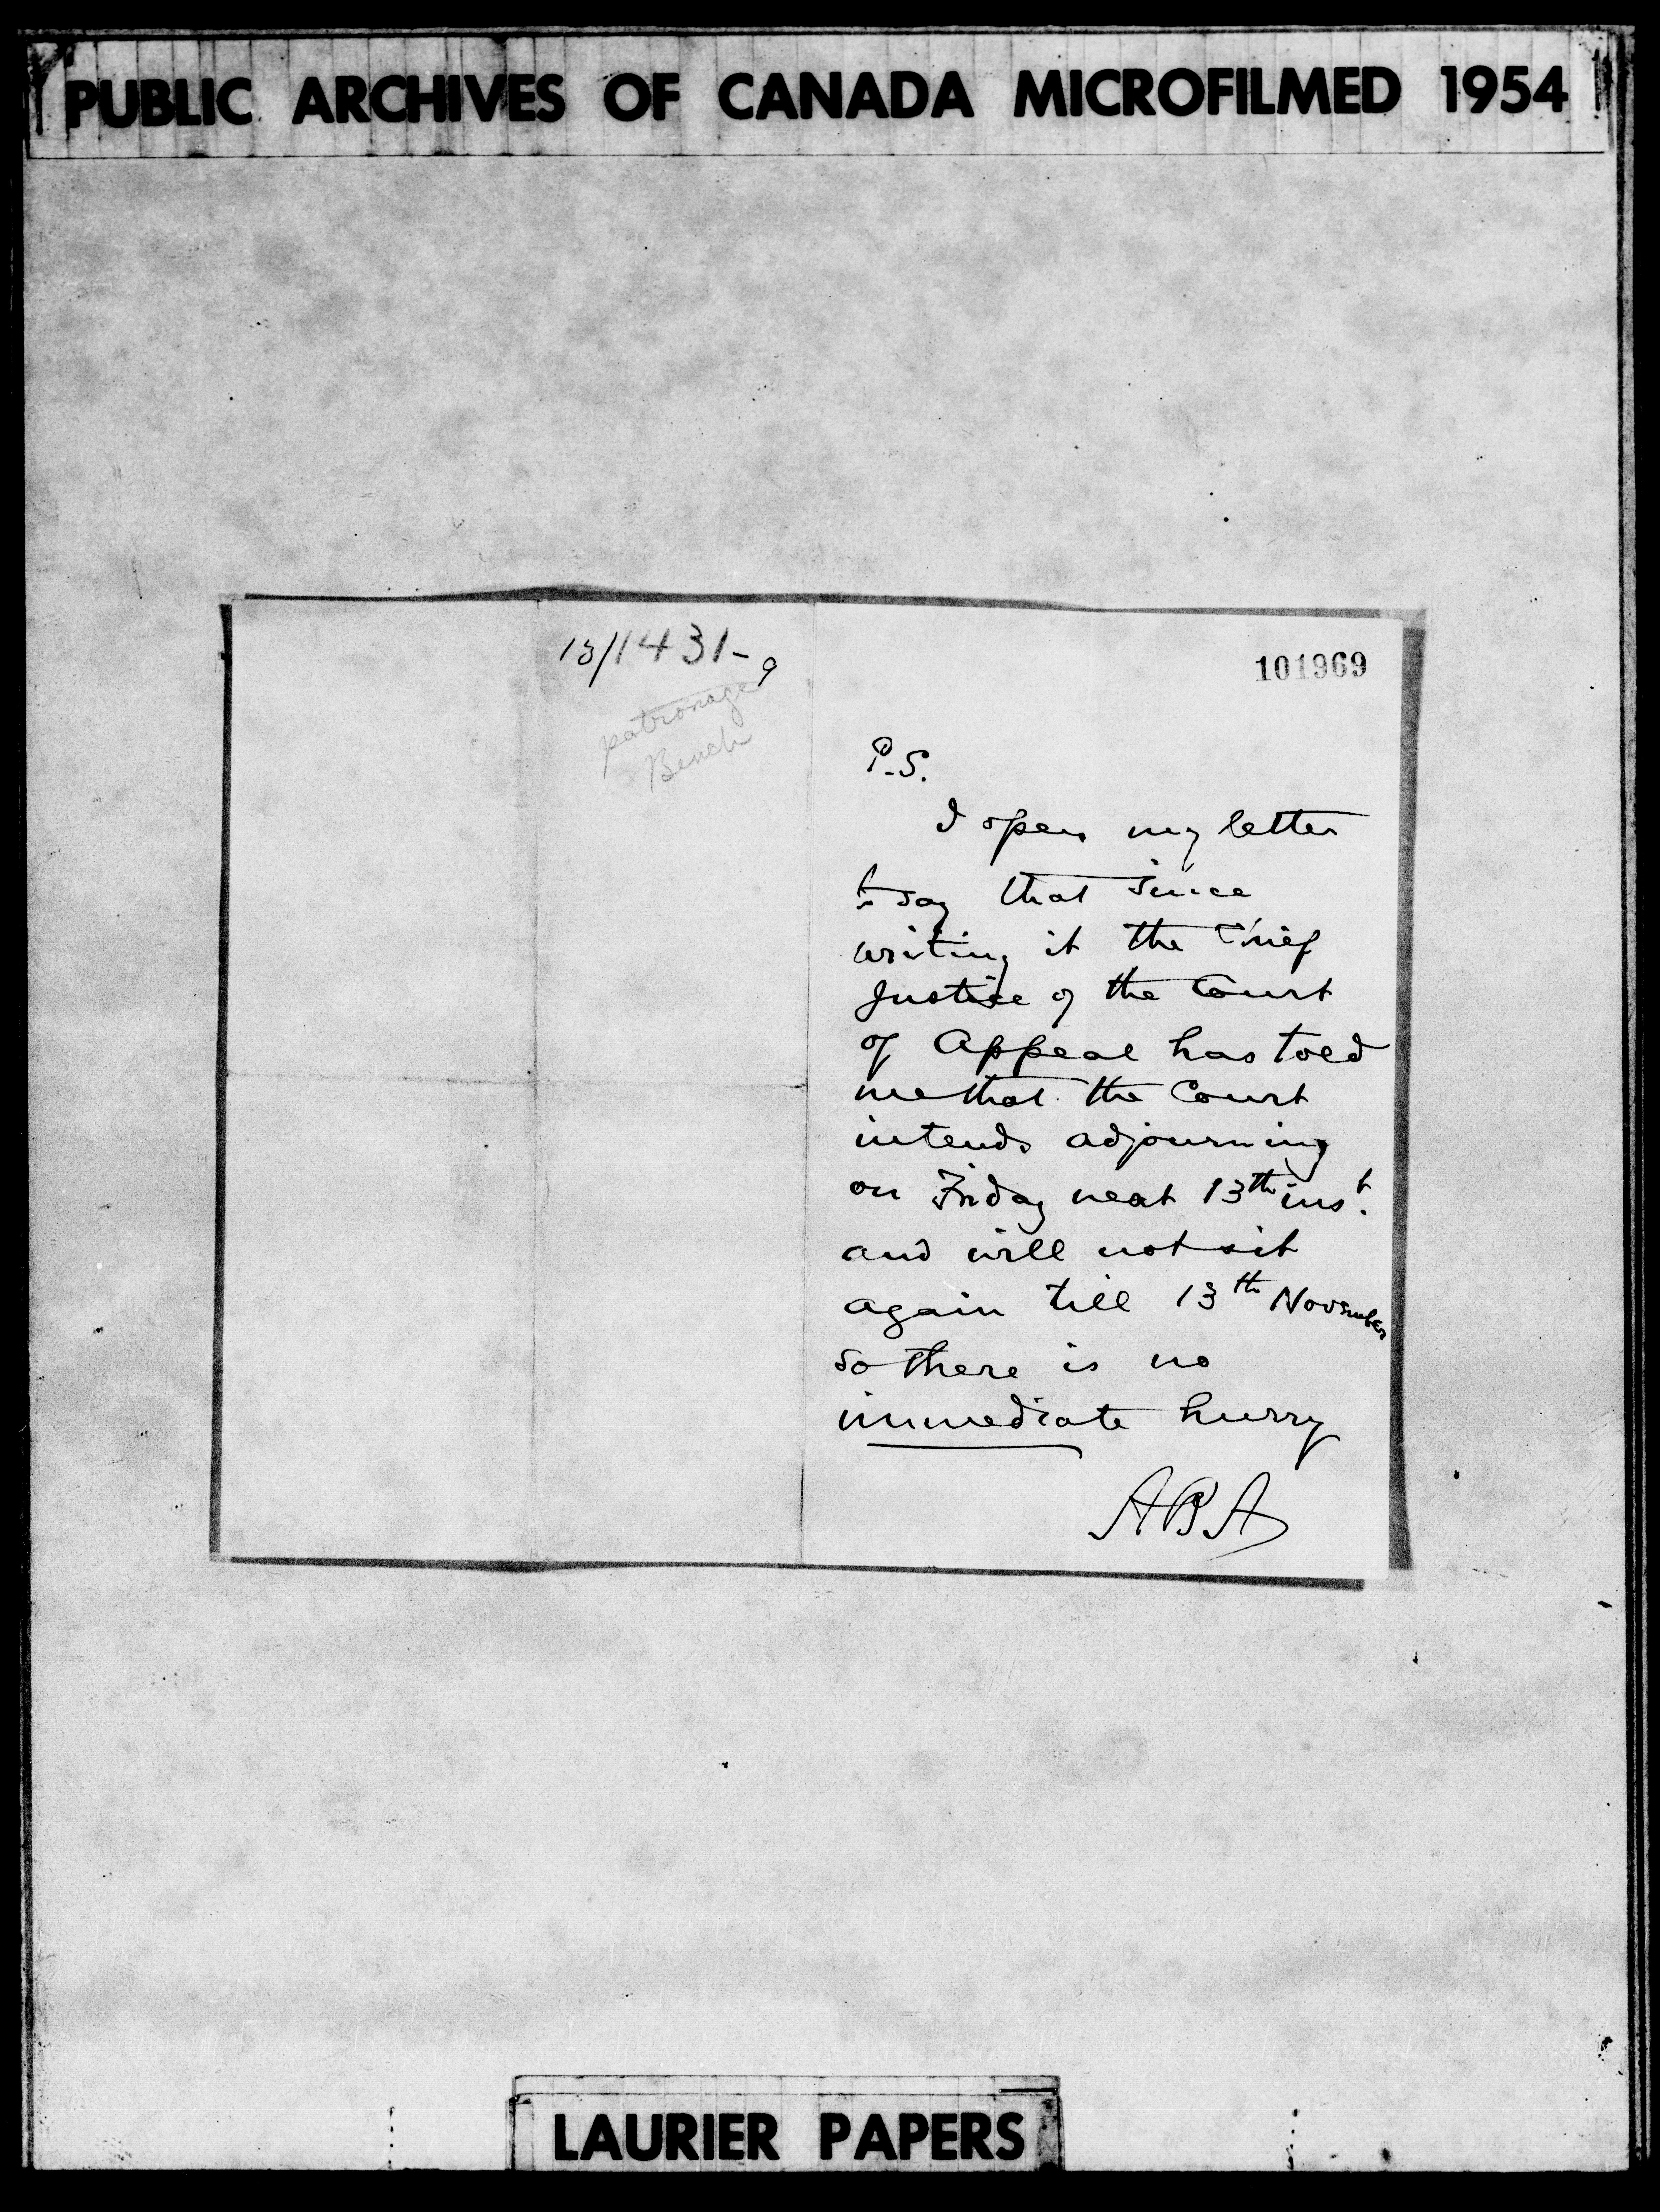 PUBLIC ARCHIVES OF CANADA MICROFILMED 1954
13/1431-9
patronage
Bench
101969
P.S.
I open my letter
to say that since
writing it the Chief
Justice of the Court
of Appeal has told
me that the Court
intends adjourning
on Friday next 13th inst.
and will not sit
again till 13th November
so there is no
immediate hurry
ABA
LAURIER PAPERS